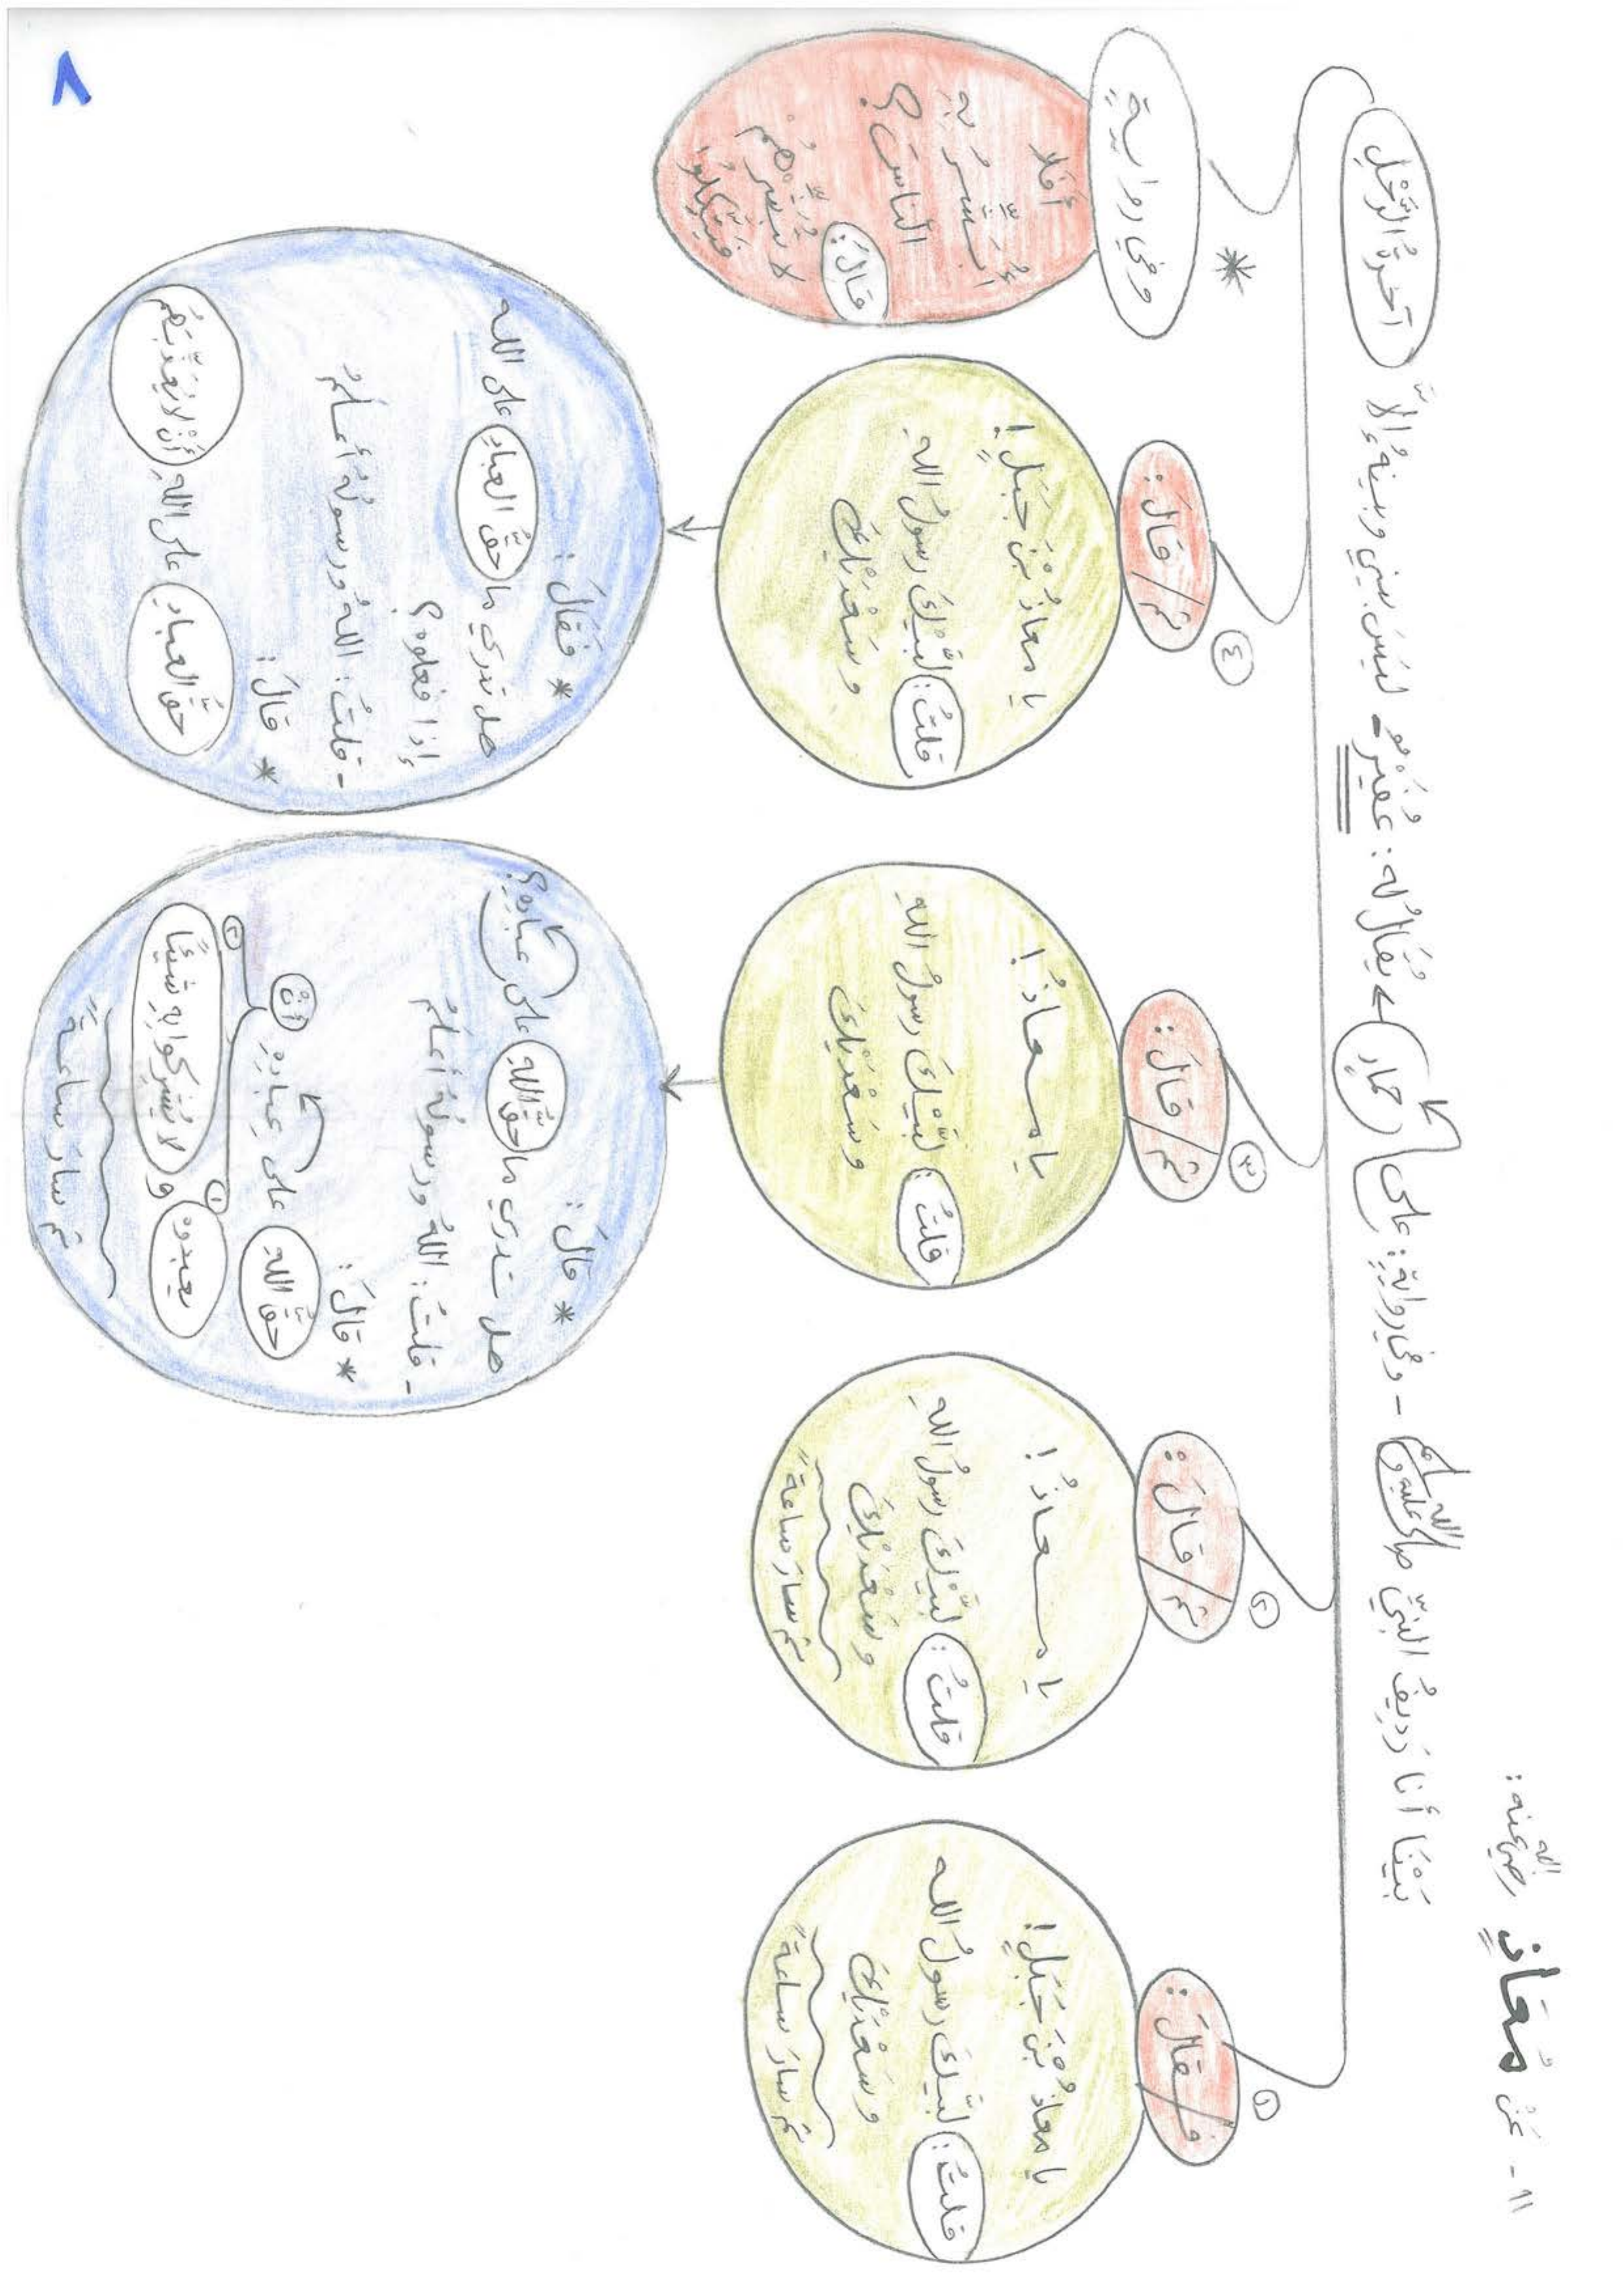 ١١- عَنْ مُعَاذٍ رضي الله عنه:
بَيْنَا أنا رَدِيفُ النبيِّ صلى الله عليه وسلم - وفي رواية: على حمار يُقَالُ له: عُفَيْر - ليسَ بيني وبينهُ إلاَّ آخرةُ الرَّحْلِ
١
فـ/قَالَ:
يا معاذُ بْنَ جَبَلٍ!
قلتُ: لبَّيكَ رسولَ الله
وسَعْدَيْكَ
ثم سارَ ساعةً
٢
ثم/قَالَ:
يا معاذُ!
قلتُ: لبَّيْكَ رسولَ اللهِ
وسَعْدَيْكَ
ثم سارَ ساعةً
٣
ثم/قَالَ:
يا معاذُ!
قلتُ: لبَّيْكَ رسولَ اللهِ
وسَعْدَيْكَ
* قالَ:
هل تدري ما حقُّ اللهِ على عبادِهِ؟
- قلتُ: اللهُ ورسولُهُ أعلمُ
* قالَ:
حقُّ اللهِ على عبادِهِ أنْ
١ يعبدوه و ٢ لا يُشركوا بِهِ شيئًا
ثم سارَ ساعةً
٤
ثم/قَالَ:
يا معاذُ بْنَ جَبَلٍ!
قلتُ: لبَّيْكَ رسولَ اللهِ
وسَعْدَيْكَ
* فقَالَ:
هل تدري ما حقُّ العبادِ على الله
إذا فعلوه؟
- قلتُ: اللهُ ورسولُهُ أعلمُ
* قالَ:
حقُّ العبادِ على اللهِ أنْ لا يُعَذِّبَهُم
*
وفي روايةٍ
أفَلا
أُبَشِّرُ بِهِ
الناسَ؟
قالَ:
لا تُبَشِّرْهُمْ
فيَتَّكِلُوا
٨